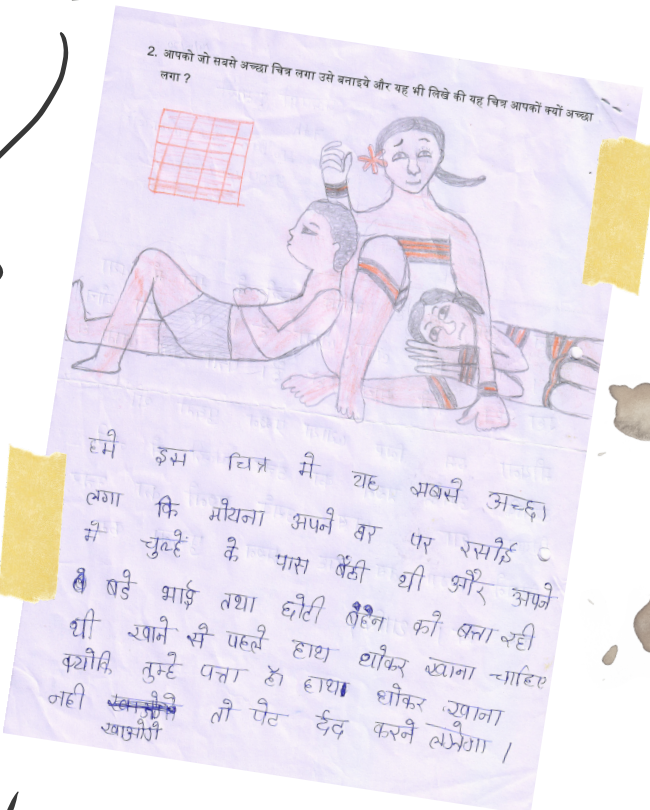 2. आपको जो सबसे अच्छा चित्र लगा उसे बनाइये और यह भी लिखे की यह चित्र आपकों क्यों अच्छा
लगा ?
हमे इस चित्र मे यह सबसे अच्छा
लगा कि मोयना अपने घर पर रसोई
मे चुल्हे के पास बैठी थी और अपने
बडे भाई तथा छोटी बहेन को बत्ता रही
थी खाने से पहले हाथ धोकर खाना चाहिए
क्योकि तुम्हे पत्ता है। हाथ धोकर खाना
नही खाओगे तो पेट र्दद करने लगेगा ।